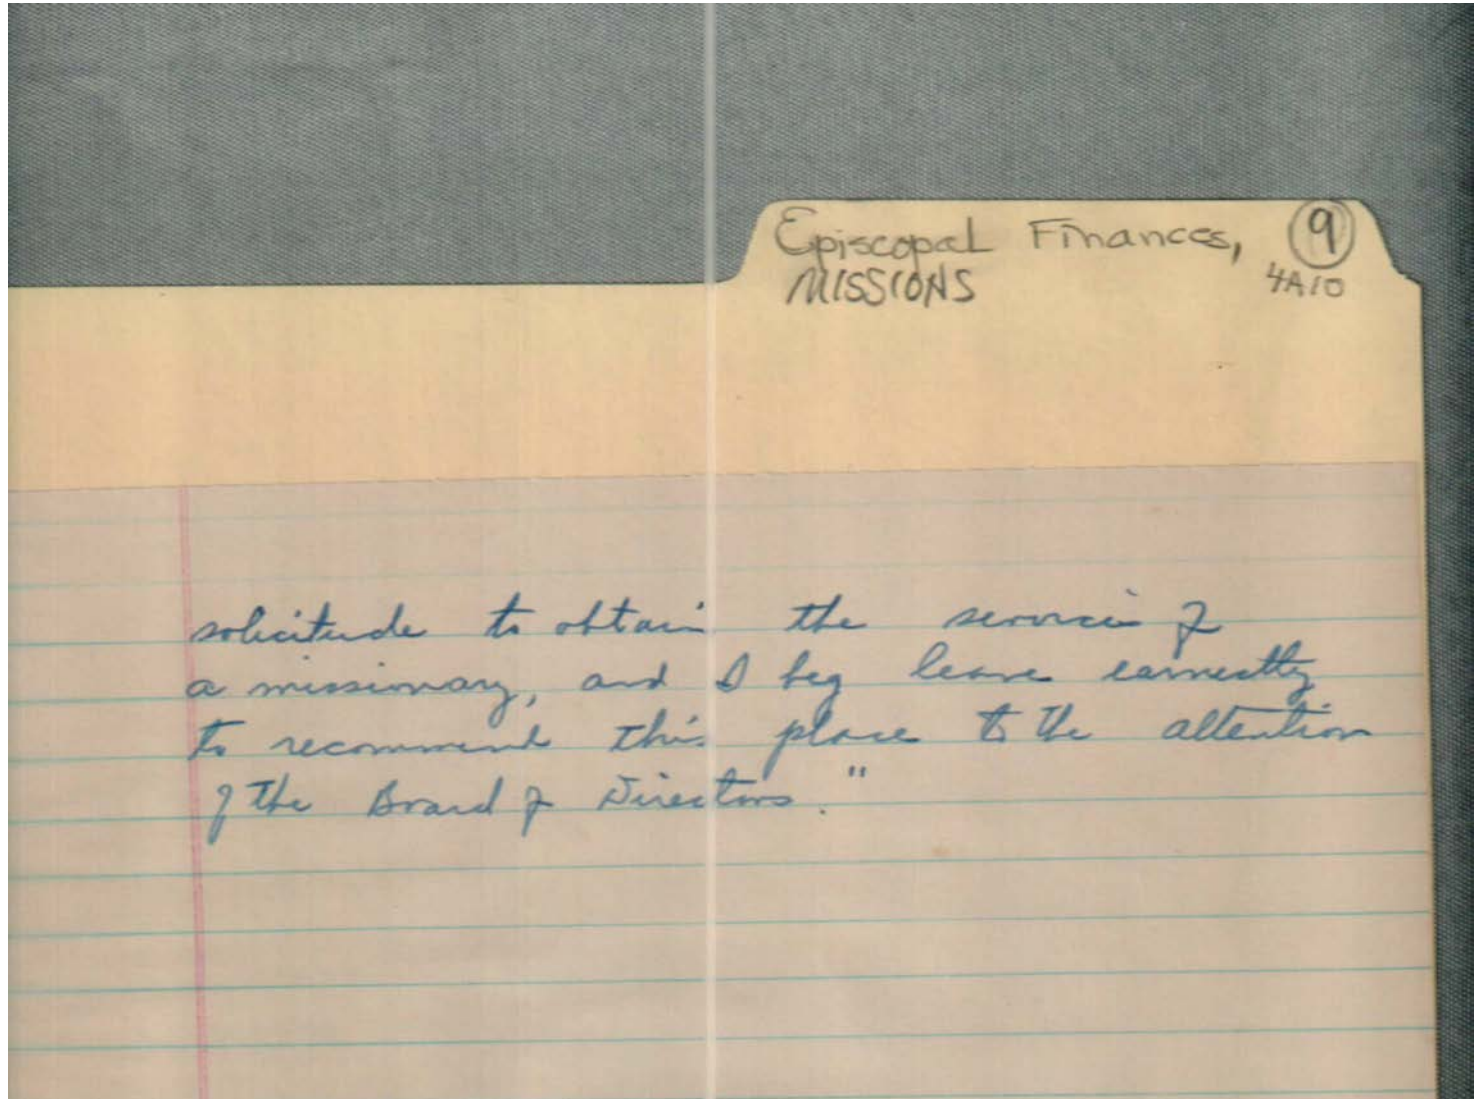 Episcopal Finances, 9
MISSIONS 4A10
solicitude to obtain the services of
a missionary, and I beg leave earnestly
to recommend this place to the attention
of the Board of Directors."